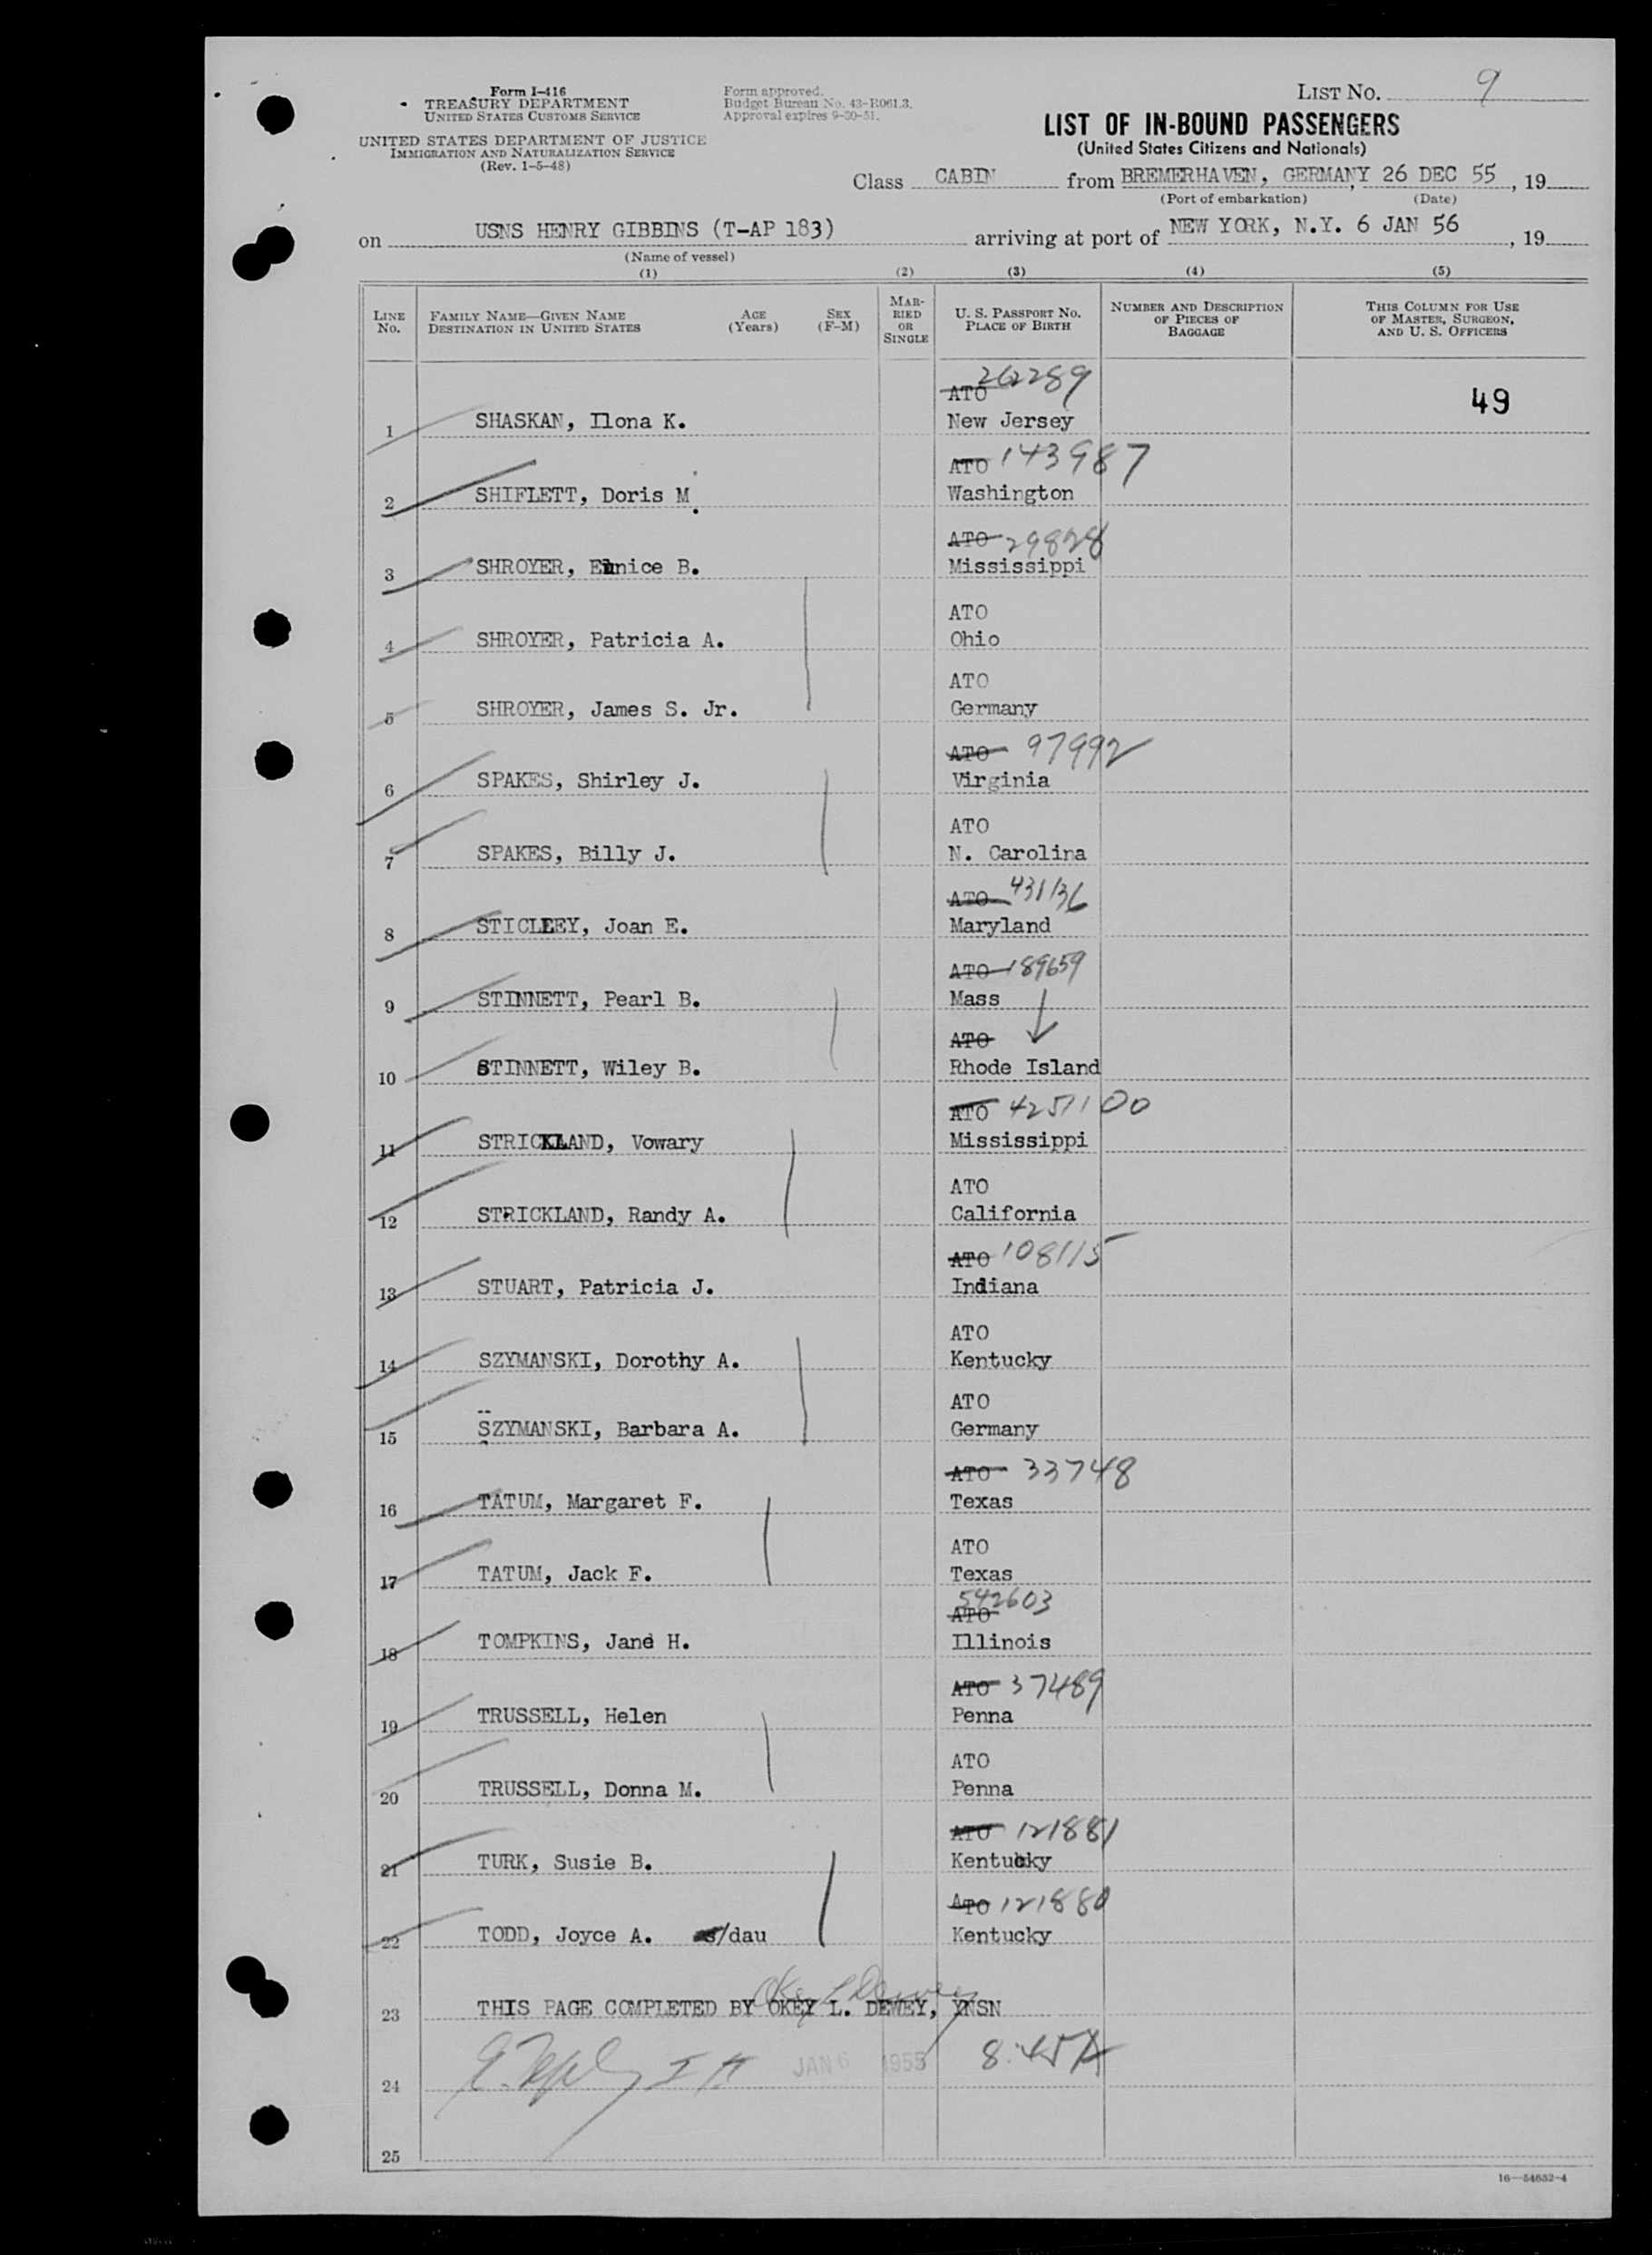 Form I-416
TREASURY DEPARTMENT
UNITED STATES CUSTOMS SERVICE
UNITED STATES DEPARTMENT OF JUSTICE
IMMIGRATION AND NATURALIZATION SERVICE
(Rev. 1-5-48)
Form approved.
Budget Bureau No. 43-R061.3.
Approval expires 9-30-51.
LIST NO. 9
LIST OF IN-BOUND PASSENGERS
(United States Citizens and Nationals)
Class CABIN from BREMERHAVEN, GERMANY, 26 DEC 55, 19
(Port of embarkation) (Date)
on USNS HENRY GIBBINS (T-AP 183) arriving at port of NEW YORK, N.Y. 6 JAN 56, 19
(Name of vessel)
(1) (2) (3) (4) (5)
LINE NO. FAMILY NAME—GIVEN NAME DESTINATION IN UNITED STATES AGE (Years) SEX (F-M) MARRIED OR SINGLE U. S. PASSPORT NO. PLACE OF BIRTH NUMBER AND DESCRIPTION OF PIECES OF BAGGAGE THIS COLUMN FOR USE OF MASTER, SURGEON, AND U. S. OFFICERS
ATO 262289 49
1 SHASKAN, Ilona K. New Jersey
ATO 143987
2 SHIFLETT, Doris M. Washington
ATO 29828
3 SHROYER, Eunice B. Mississippi
ATO
4 SHROYER, Patricia A. Ohio
ATO
5 SHROYER, James S. Jr. Germany
ATO 97992
6 SPAKES, Shirley J. Virginia
ATO
7 SPAKES, Billy J. N. Carolina
ATO 431136
8 STICLEEY, Joan E. Maryland
ATO 189659
9 STINNETT, Pearl B. Mass
ATO
10 STINNETT, Wiley B. Rhode Island
ATO 4251100
11 STRICKLAND, Vowary Mississippi
ATO
12 STRICKLAND, Randy A. California
ATO 108115
13 STUART, Patricia J. Indiana
ATO
14 SZYMANSKI, Dorothy A. Kentucky
ATO
15 SZYMANSKI, Barbara A. Germany
ATO 33748
16 TATUM, Margaret F. Texas
ATO
17 TATUM, Jack F. Texas
542603
ATO
18 TOMPKINS, Jane H. Illinois
ATO 37489
19 TRUSSELL, Helen Penna
ATO
20 TRUSSELL, Donna M. Penna
ATO 121881
21 TURK, Susie B. Kentucky
ATO 121880
22 TODD, Joyce A. s/dau Kentucky
23 THIS PAGE COMPLETED BY OKEY L. DEWEY, YNSN
JAN 6 1955 8:45A
24
25
16—54652-4